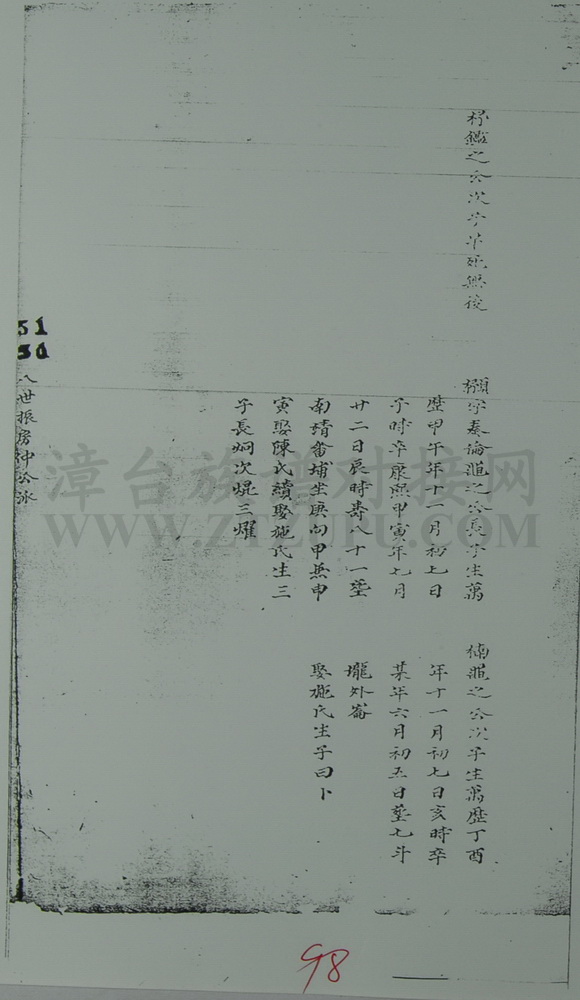 杼鑑之公次子早死無後
櫇字奏論涎之公長子生萬
歷甲午年十一月初七日
子時卒康熙甲寅年七月
廿二日辰時壽八十一塟
南靖畨埔坐庚向甲兼申
寅娶陳氏續娶施氏生三
子長炯次焜三燿
之公次子生萬歷丁酉
年十一月初七日亥時卒
某年六月初五日塟七斗
壠外崙
娶施氏生子曰卜
51
50
八世振房仲公派
漳台族谱对接网
WWW.ZTZUPU.COM
98